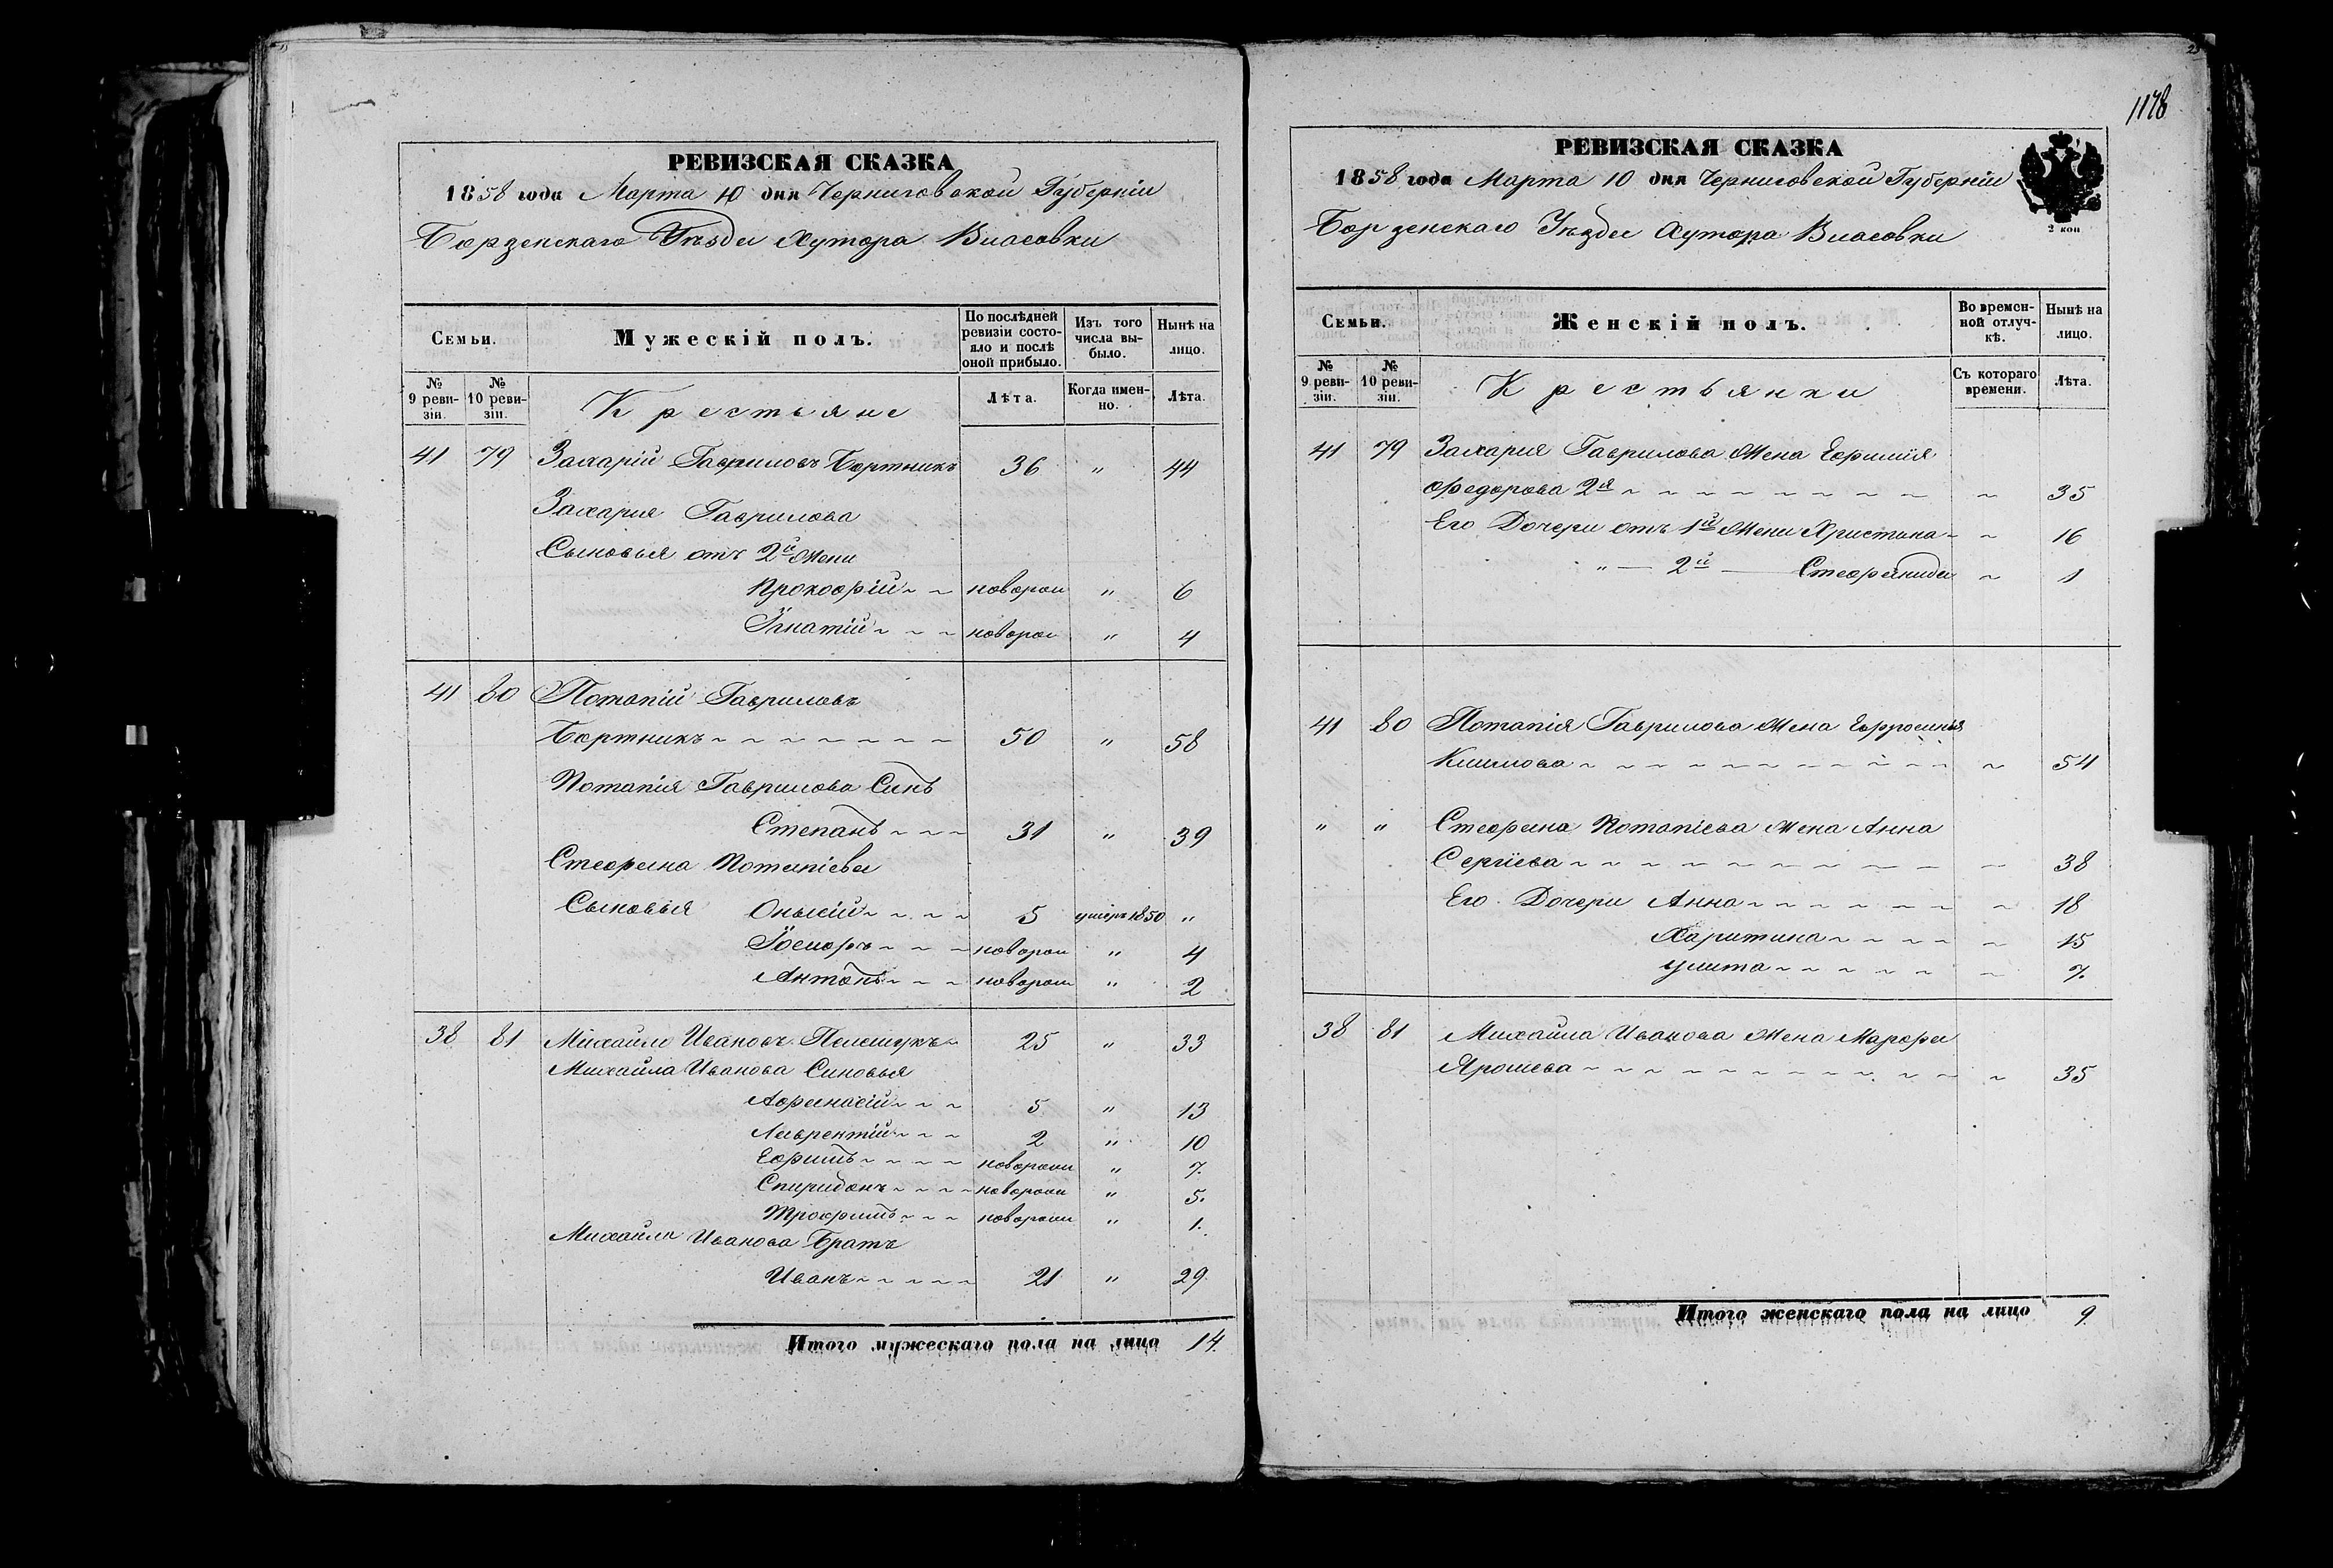 РЕВИЗСКАЯ СКАЗКА
1858 года Марта 10 дня Черниговской Губерніи
Борзенскаго Уѣзда Хутора Власовки
Семьи.
Мужескій полъ.
По послѣдней ревизіи состояло и послѣ оной прибыло.
Изъ того числа выбыло.
Нынѣ на лицо.
№ 9 ревизіи.
№ 10 ревизіи.
Крестьяне
Лѣта.
Когда именно.
Лѣта.
41 79 Захарій Гавриловъ Бортникъ 36 " 44
Захария Гаврилова
Сыновья отъ 2й Жени
Прокофій новорож " 6
Ігнатій новорож " 4
41 80 Потапій Гавриловъ
Бортникъ 50 " 58
Потапія Гаврилова Синъ
Степанъ 31 " 39
Стефана Потапіева
Сыновья Онисій 5 умеръ 1850 "
Іосифъ новорож " 4
Антонъ новорож " 2
38 81 Михайло Ивановъ 25 " 33
Михайла Иванова Синовья
Афанасій 5 " 13
Лаврентій 2 " 10
Ефимъ новорож " 7.
Спиридонъ новорож " 5.
Трофимъ новорож " 1.
Михайла Иванова Братъ
Иванъ 21 " 29.
Итого мужескаго пола на лицо 14.
1178
РЕВИЗСКАЯ СКАЗКА
1858 года Марта 10 дня Черниговской Губерніи
Борзенскаго Уѣзда Хутора Власовки
2 коп
Семьи.
Женскій полъ.
Во временной отлучкѣ.
Нынѣ на лицо.
№ 9 ревизіи.
№ 10 ревизіи.
Крестьянки
Съ котораго времени.
Лѣта.
41 79 Захария Гаврилова Жена Ефимія
Федорова 2я 35
Его Дочери отъ 1й Жени Христина 16
" — 2й — Стефанида 1
41 80 Потапія Гаврилова Жена Ефросинья
Климова 54
" " Стефана Потапіева Жена Анна
Сергіева 38
Его Дочери Анна 18
Харитина 15
Улита 7.
38 81 Михайла Иванова Жена Марфа
Ярошева 35
Итого женскаго пола на лицо 9.